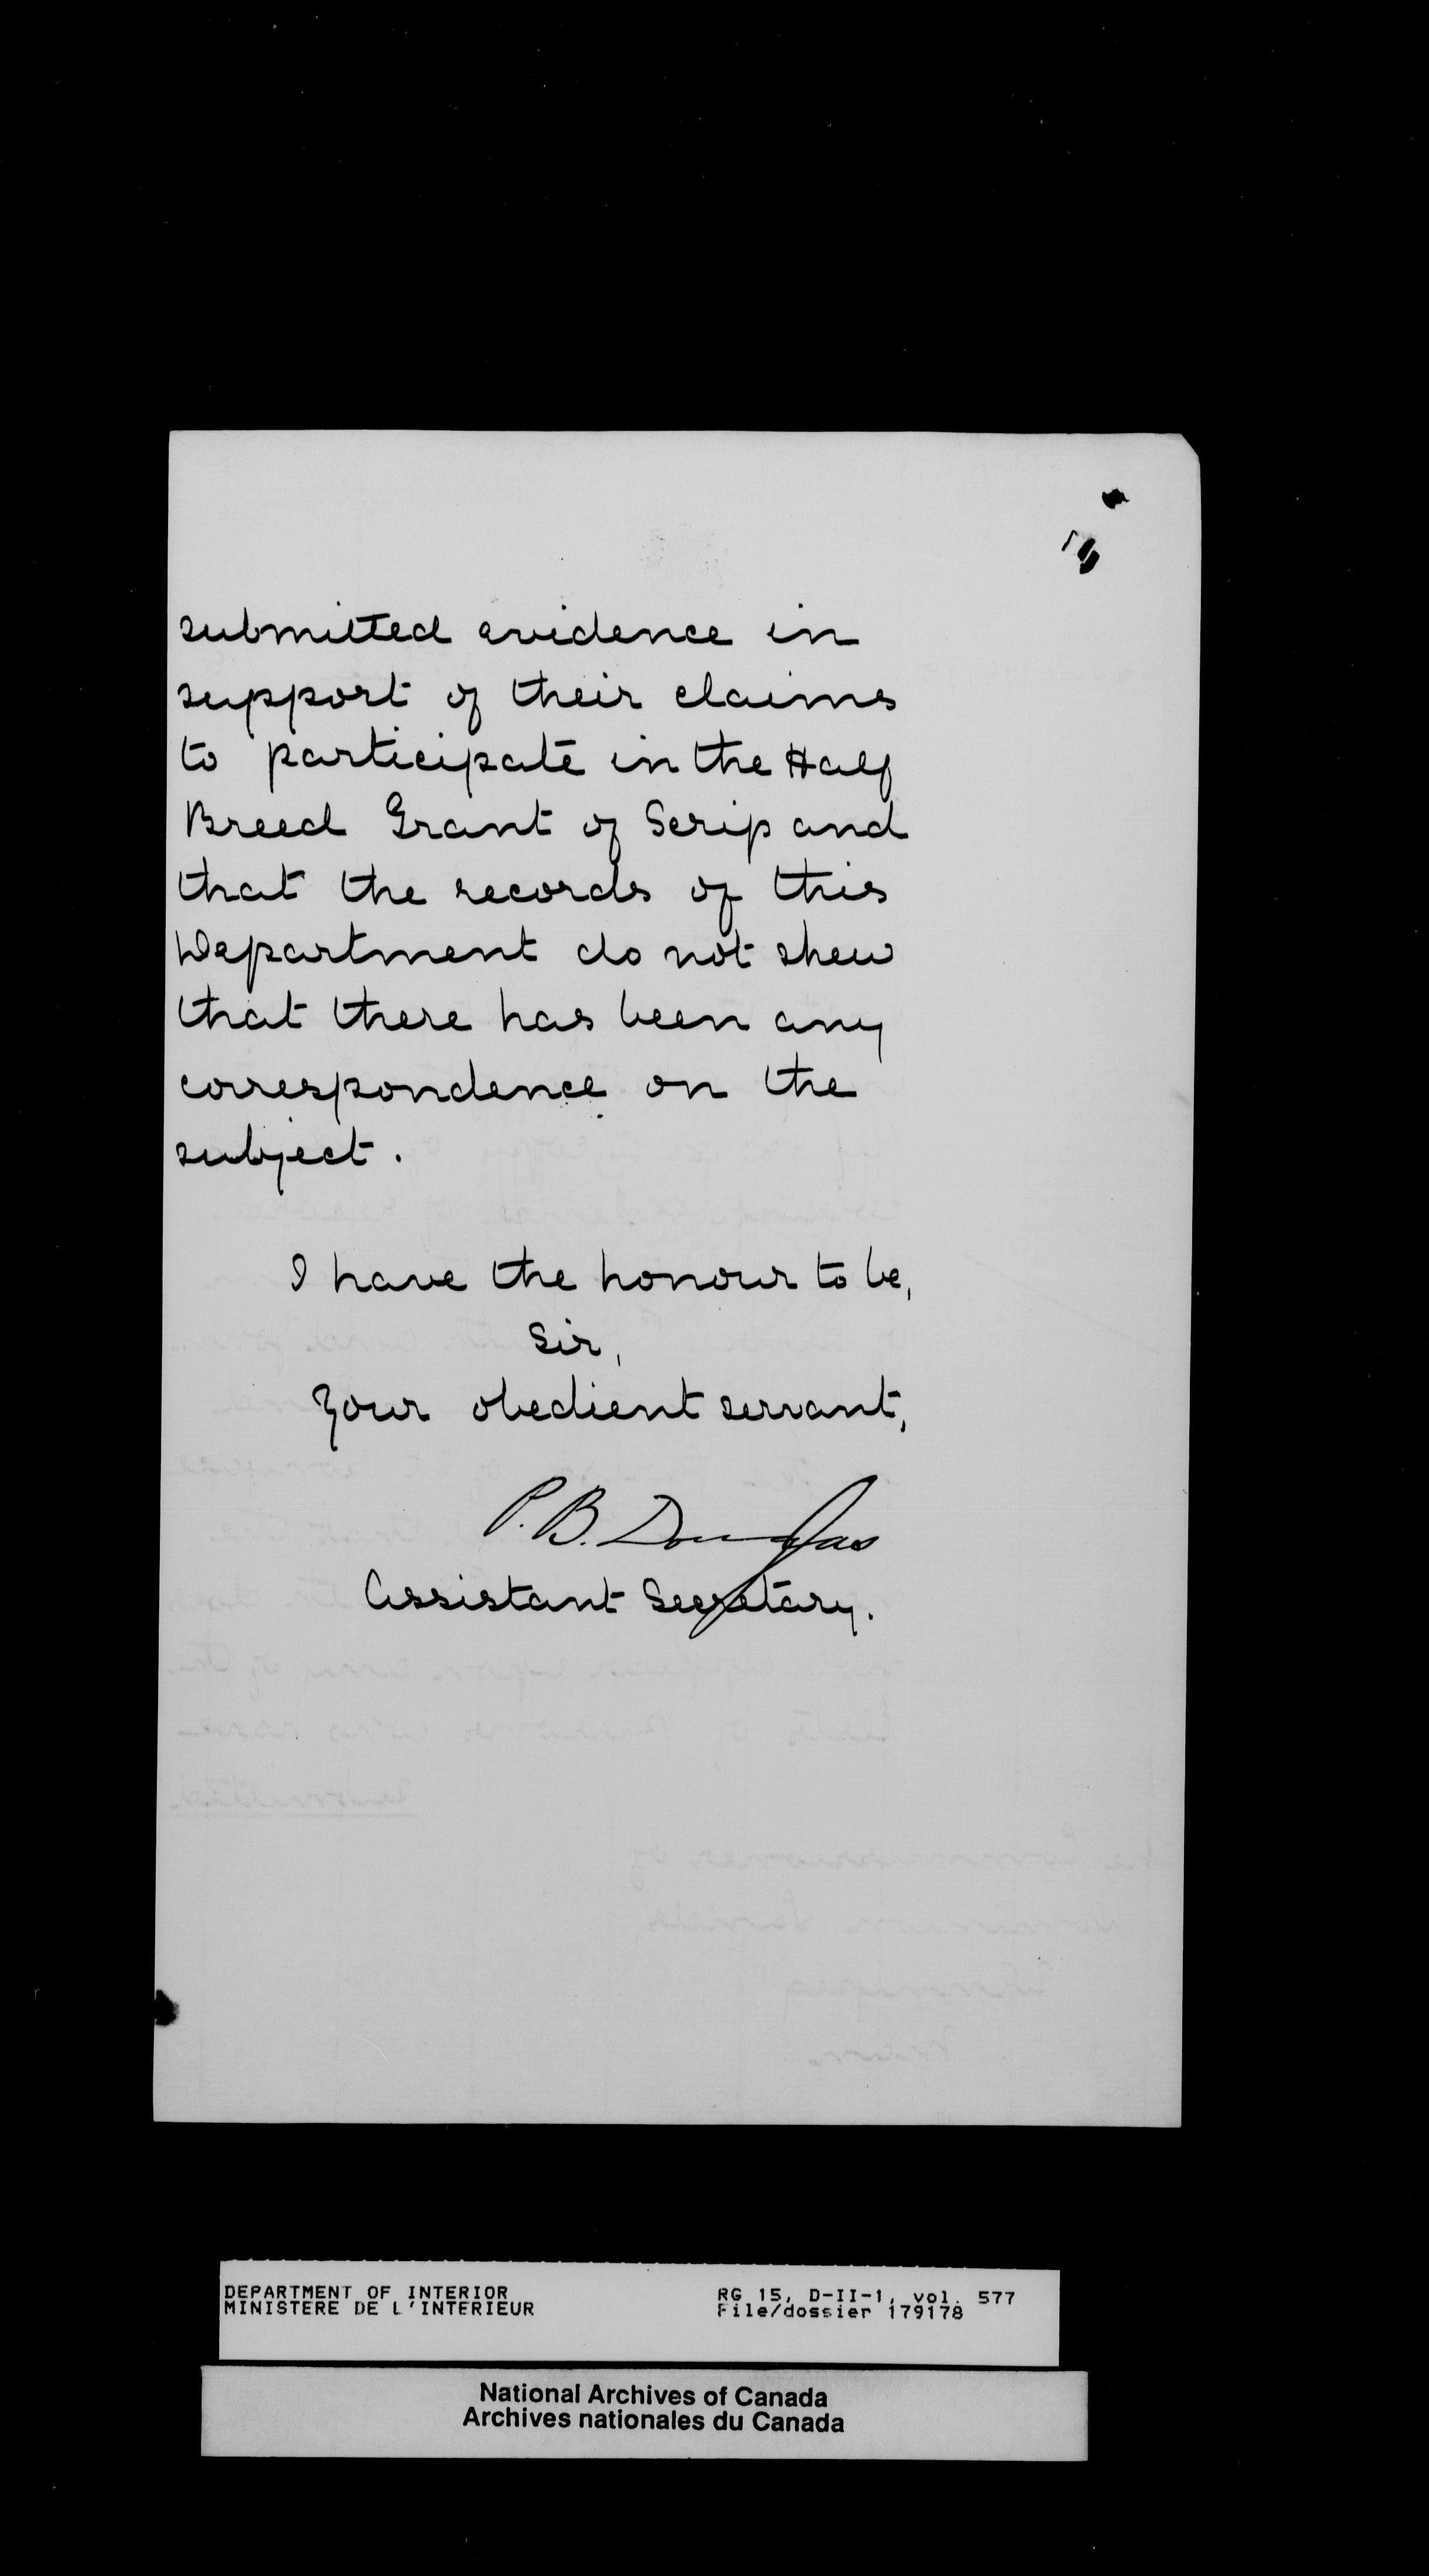 submitted evidence in
support of their claims
to participate in the Half
Breed Grant of Scrip and
that the records of this
Department do not shew
that there has been any
correspondence on the
subject.
I have the honour to be,
Sir,
Your obedient servant,
P. B. Douglas
Assistant Secretary.
DEPARTMENT OF INTERIOR
MINISTERE DE L'INTERIEUR
RG 15, D-II-1, vol. 577
File/dossier 179178
National Archives of Canada
Archives nationales du Canada